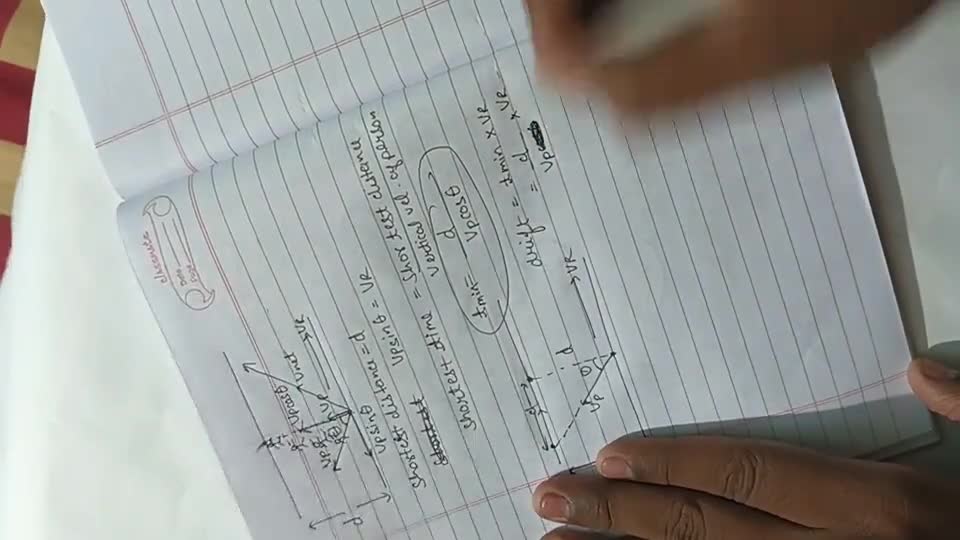 classmate
Date
Page
d
VPcosθ
Vnet
VR
VPsinθ
shortest distance = d
VPsinθ = VR
shortest time = shortest distance
vertical vel. of person
tmin = d
VPcosθ
drift = tmin × VR
= d × VR
VP
d
VR
θ
VP